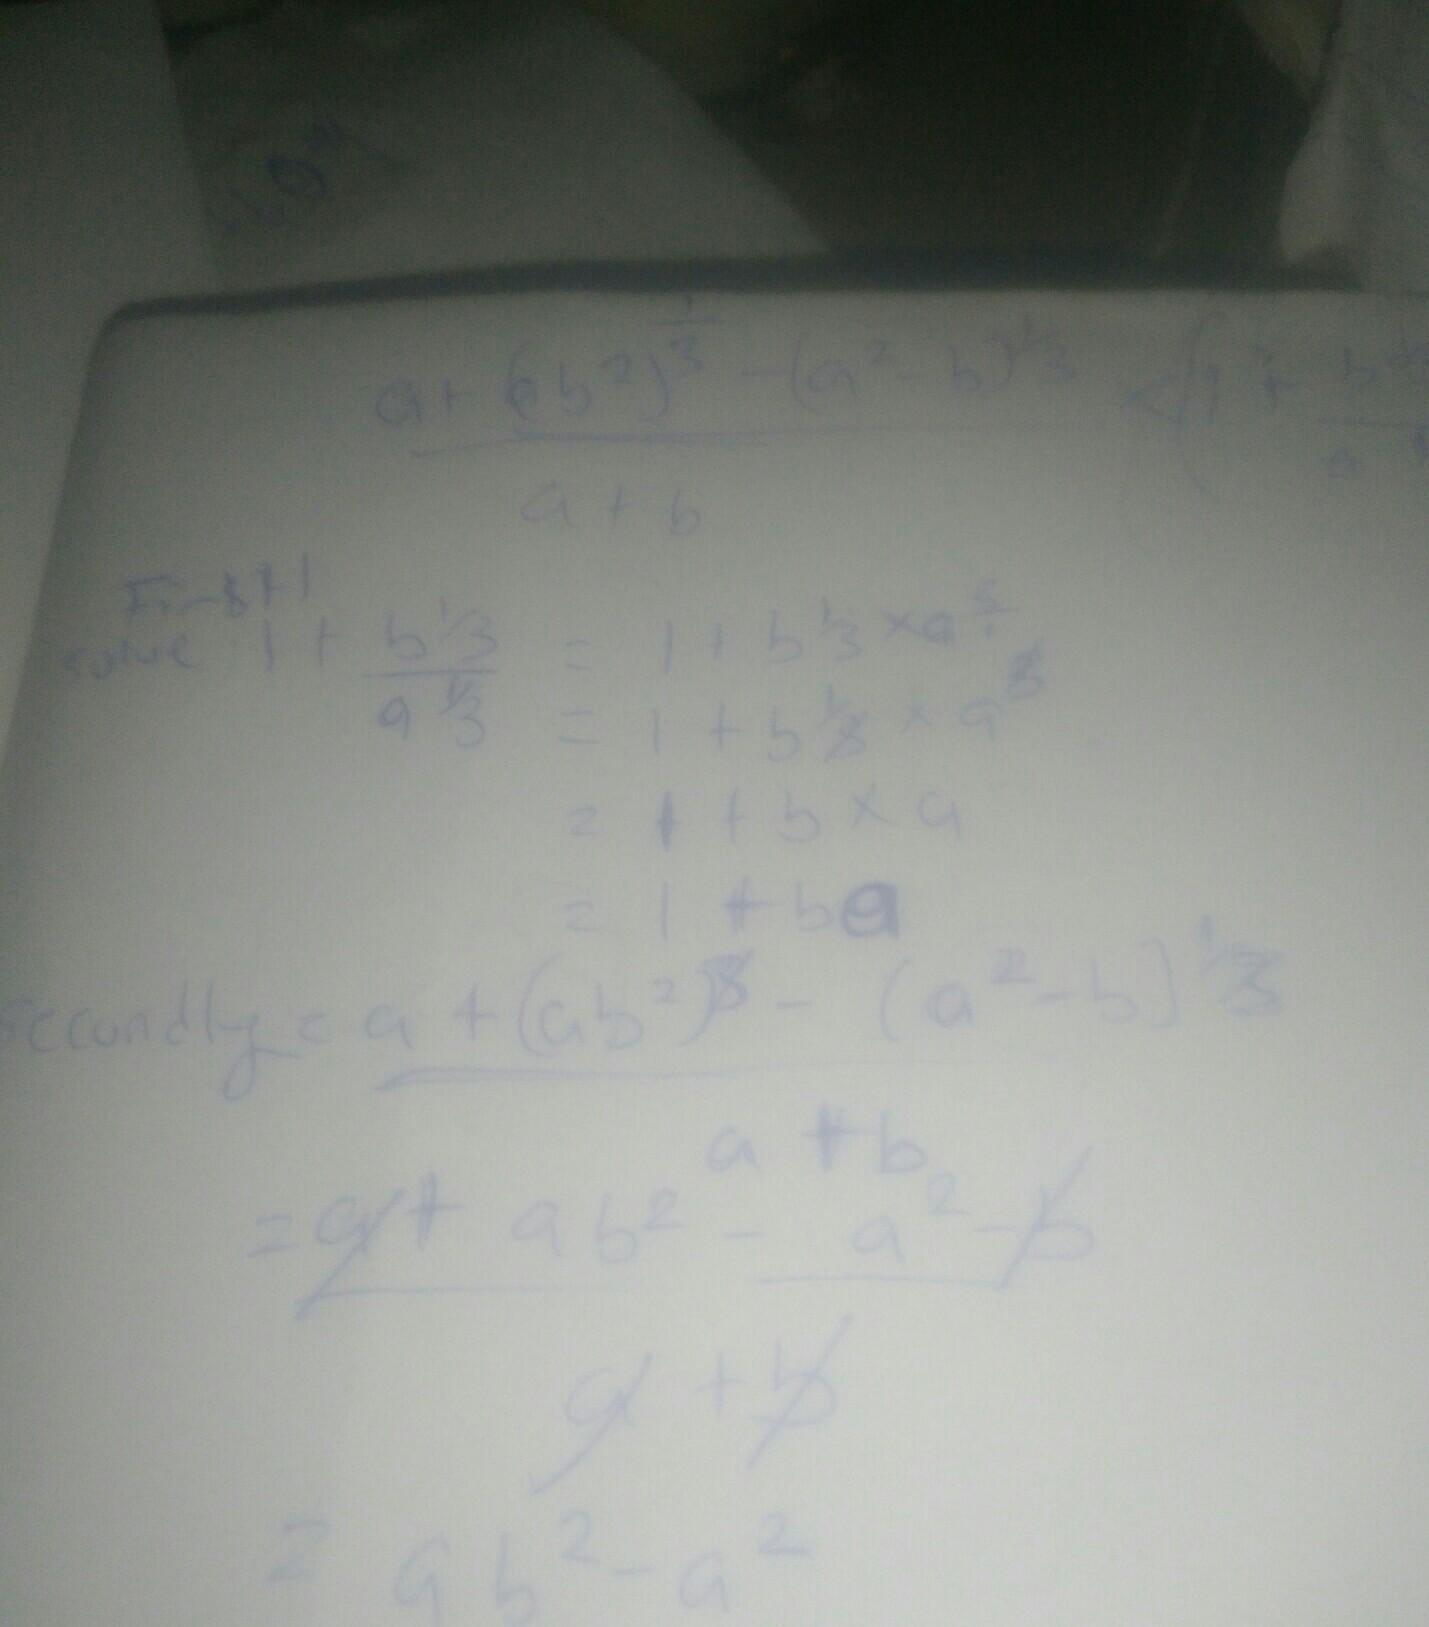 a + (ab²)^1/3 - (a² - b)^1/3 (1 + b
a + b
First
solve 1 + b^1/3 / a^1/3 = 1 + b^1/3 × a
= 1 + b^1/3 × a^3
= 1 + b × a
= 1 + ba
Secondly = a + (ab²)^3 - (a² - b)^1/3
a + b
= a + ab² - a² - b
a + b
= ab² - a²